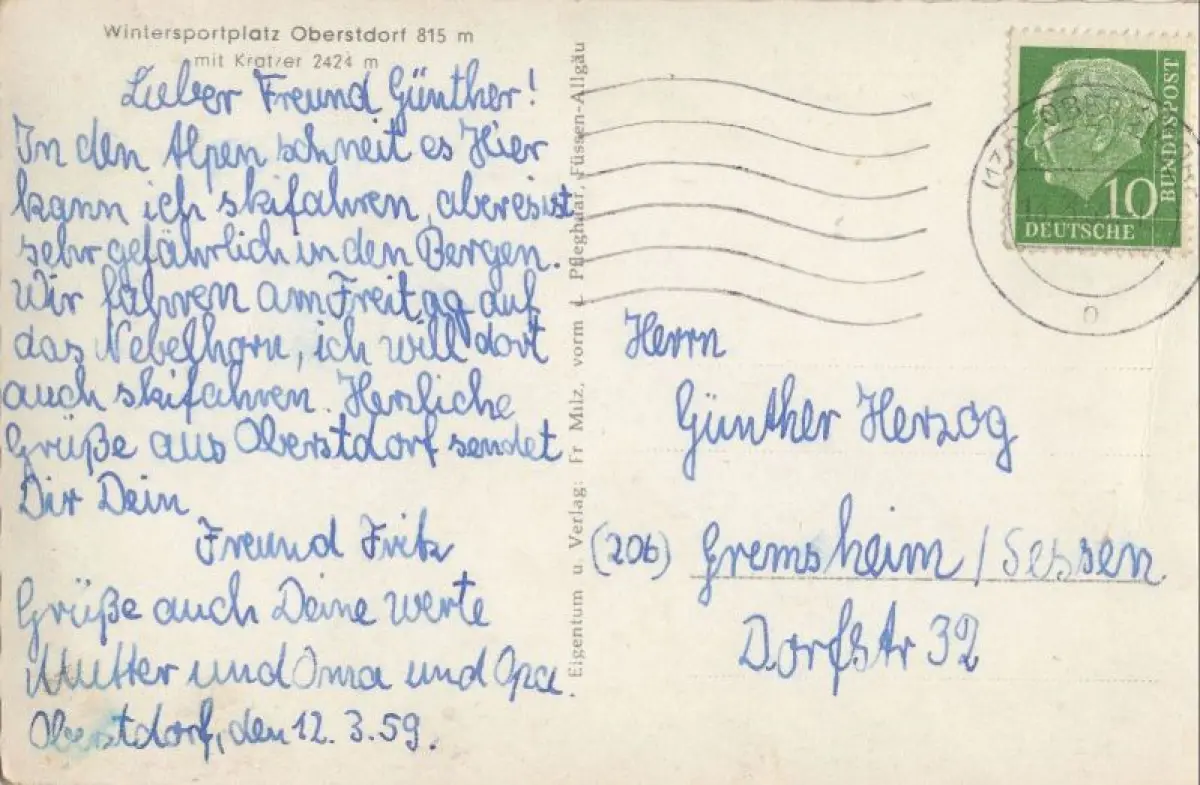 Wintersportplatz Oberstdorf 815 m
mit Kratzer 2424 m
Lieber Freund Günther!
In den Alpen schneit es Hier
kann ich skifahren, aber es ist
sehr gefährlich in den Bergen.
Wir fahren am Freitag auf
das Nebelhorn, ich will dort
auch skifahren. Herzliche
Grüße aus Oberstdorf sendet
Dir Dein
Freund Fritz
Grüße auch Deine werte
Mutter und Oma und Opa.
Oberstdorf, den 12. 3. 59.
Eigentum u. Verlag: Fr Milz, vorm. Pfleghdar, Füssen-Allgäu
DEUTSCHE
BUNDESPOST
10
Herrn
Günther Herzog
(20b) Gremsheim / Sessen
Dorfstr 32